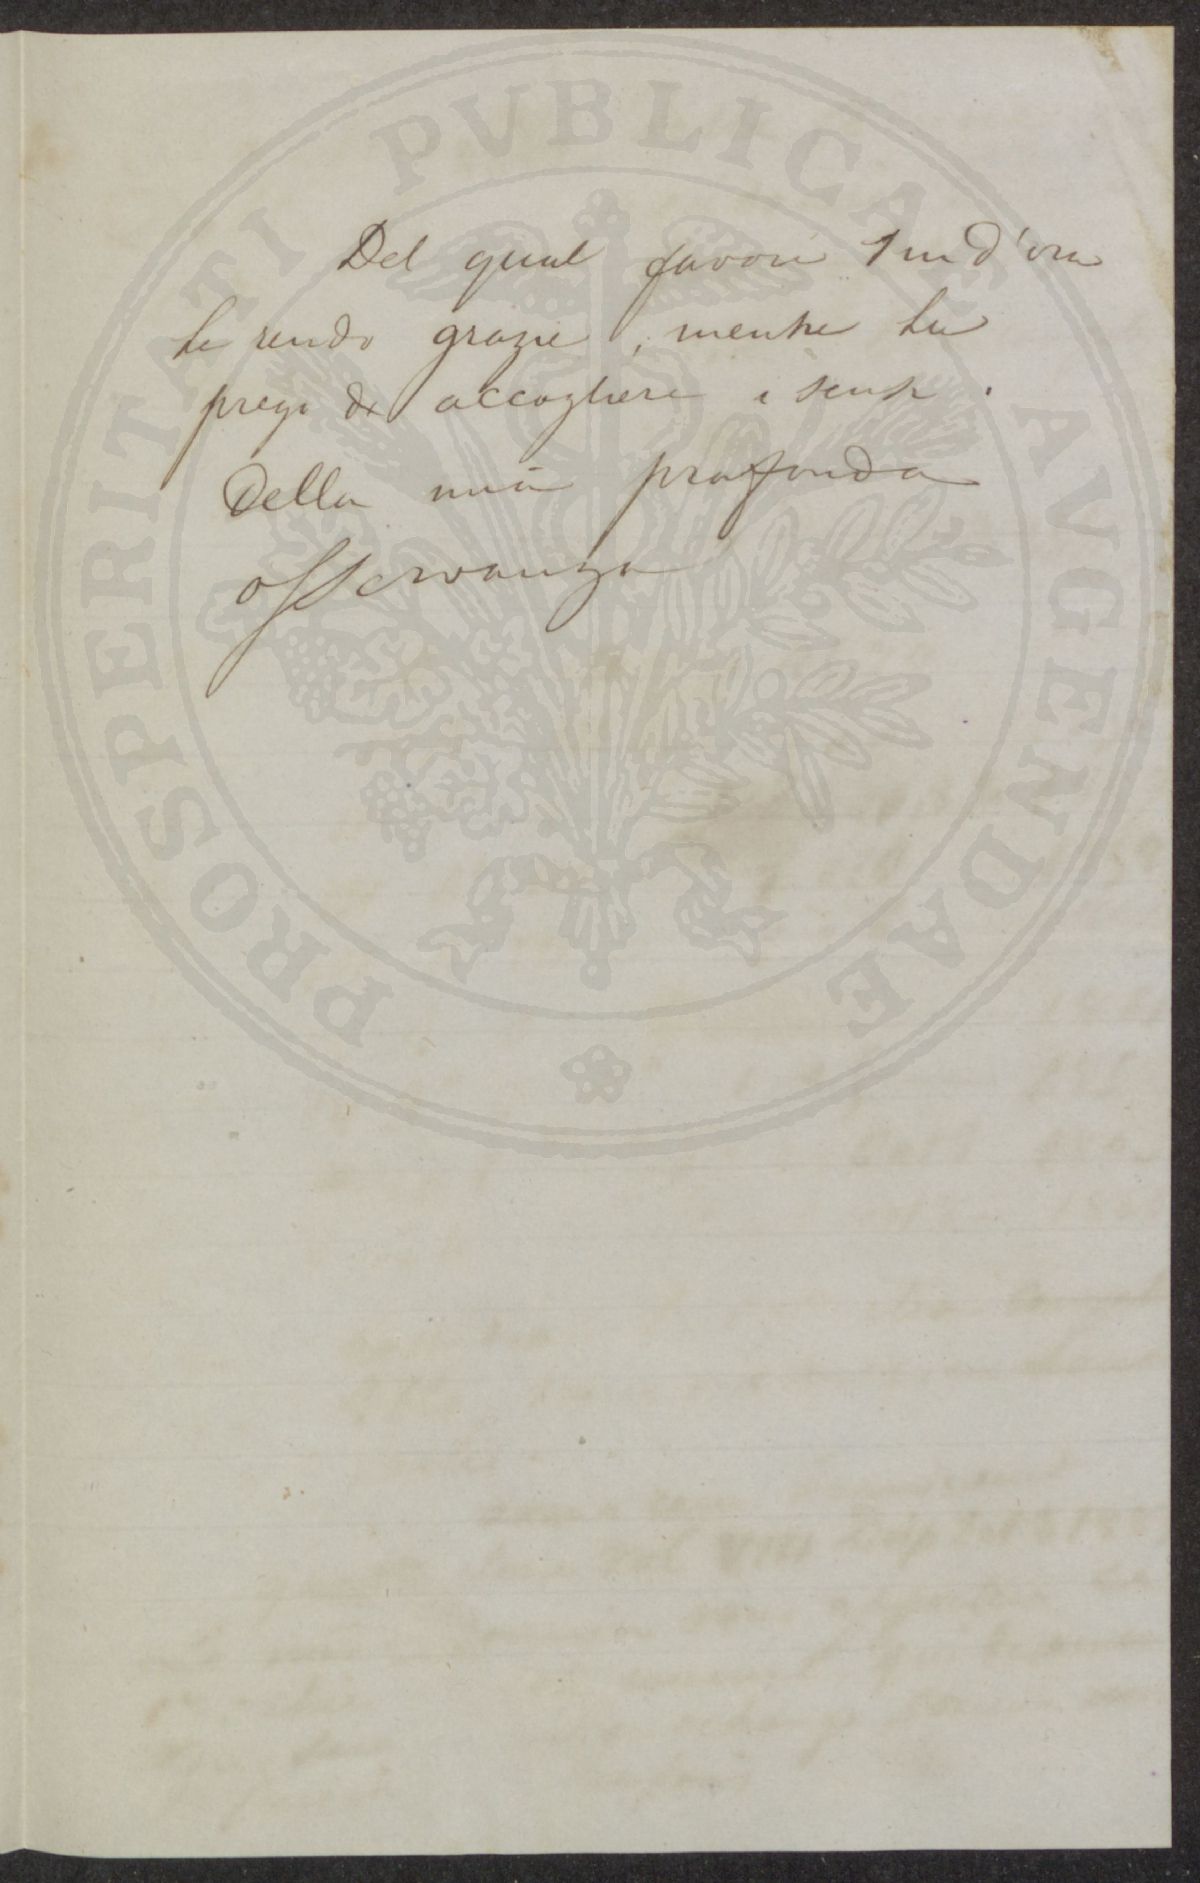 Del qual favore sin d'ora
Le rendo grazie, mentre La
prego di accogliere i sensi
della mia profonda
osservanza
PROSPERITATI PVBLICAE AVGENDAE